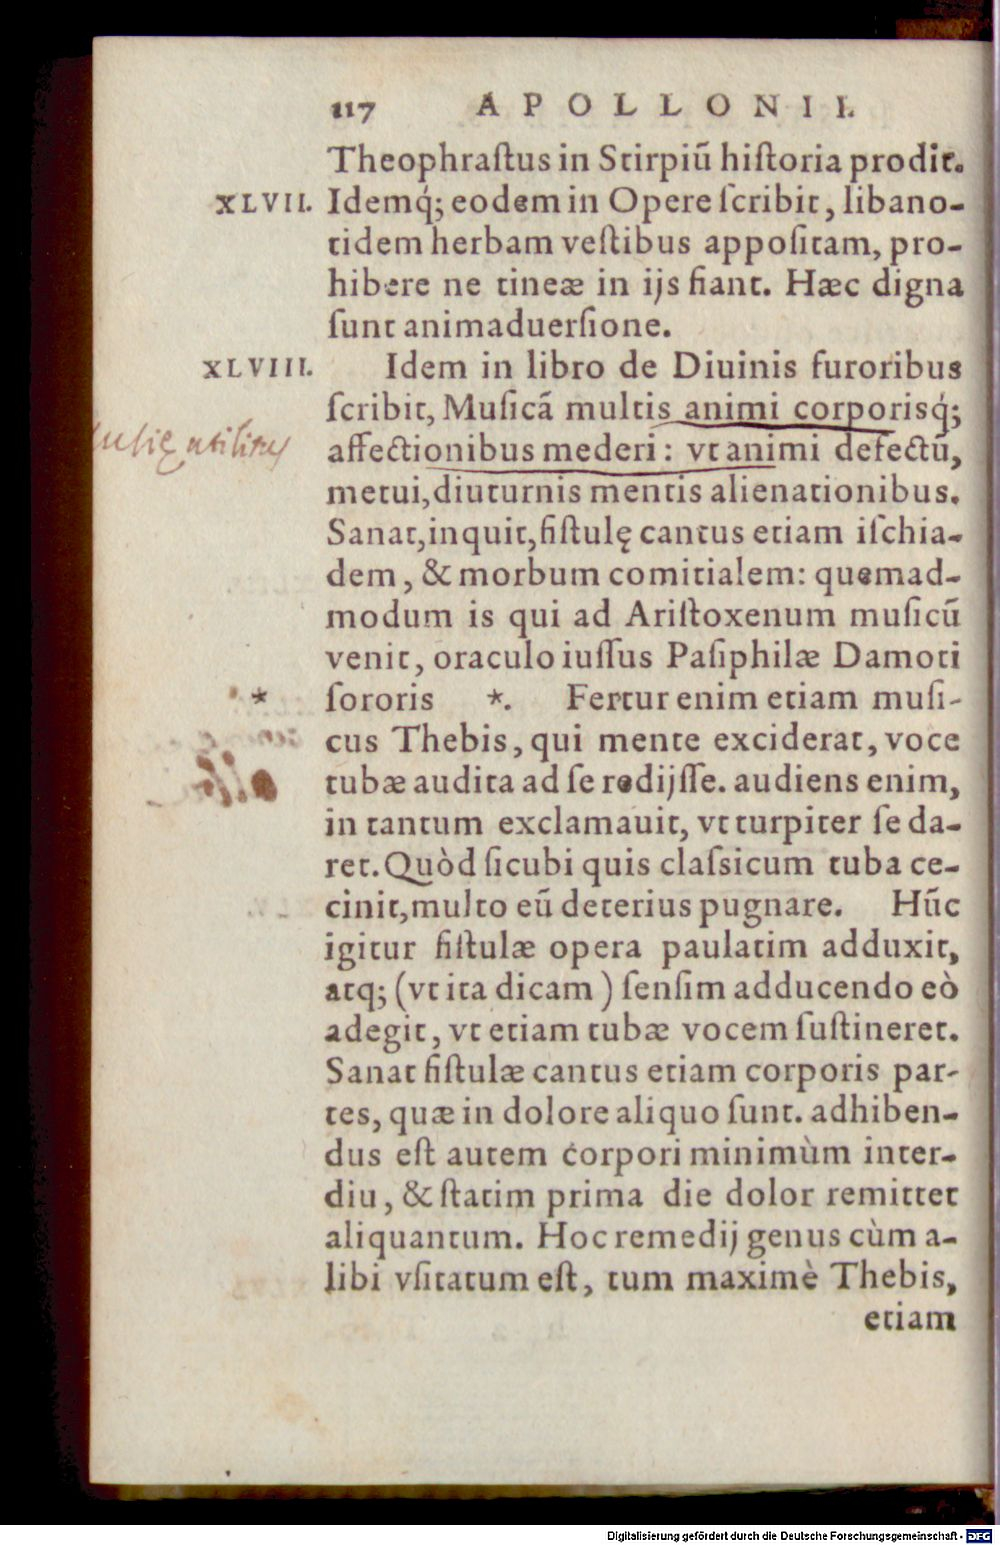 117 APOLLONII.
Theophraſtus in Stirpiũ hiſtoria prodit.
XLVII. Idemq́; eodem in Opere ſcribit, libano-
tidem herbam veſtibus appoſitam, pro-
hibere ne tineæ in ijs fiant. Hæc digna
ſunt animaduerſione.
XLVIII. Idem in libro de Diuinis furoribus
ſcribit, Muſicã multis animi corporisq́;
affectionibus mederi: vt animi defectũ,
utilitas
metui, diuturnis mentis alienationibus.
Sanat, inquit, fiſtulę cantus etiam iſchia-
dem, & morbum comitialem: quemad-
modum is qui ad Ariſtoxenum muſicũ
venit, oraculo iuſſus Paſiphilæ Damoti
* ſororis *. Fertur enim etiam muſi-
cus Thebis, qui mente exciderat, voce
tubæ audita ad ſe redijſſe. audiens enim,
in tantum exclamauit, vt turpiter ſe da-
ret. Quòd ſicubi quis claſsicum tuba ce-
cinit, multo eũ deterius pugnare. Hũc
igitur fiſtulæ opera paulatim adduxit,
atq; (vt ita dicam) ſenſim adducendo eò
adegit, vt etiam tubæ vocem ſuſtineret.
Sanat fiſtulæ cantus etiam corporis par-
tes, quæ in dolore aliquo ſunt. adhiben-
dus eſt autem corpori minimùm inter-
diu, & ſtatim prima die dolor remittet
aliquantum. Hoc remedij genus cùm a-
libi vſitatum eſt, tum maximè Thebis,
etiam
Digitalisierung gefördert durch die Deutsche Forschungsgemeinschaft - DFG